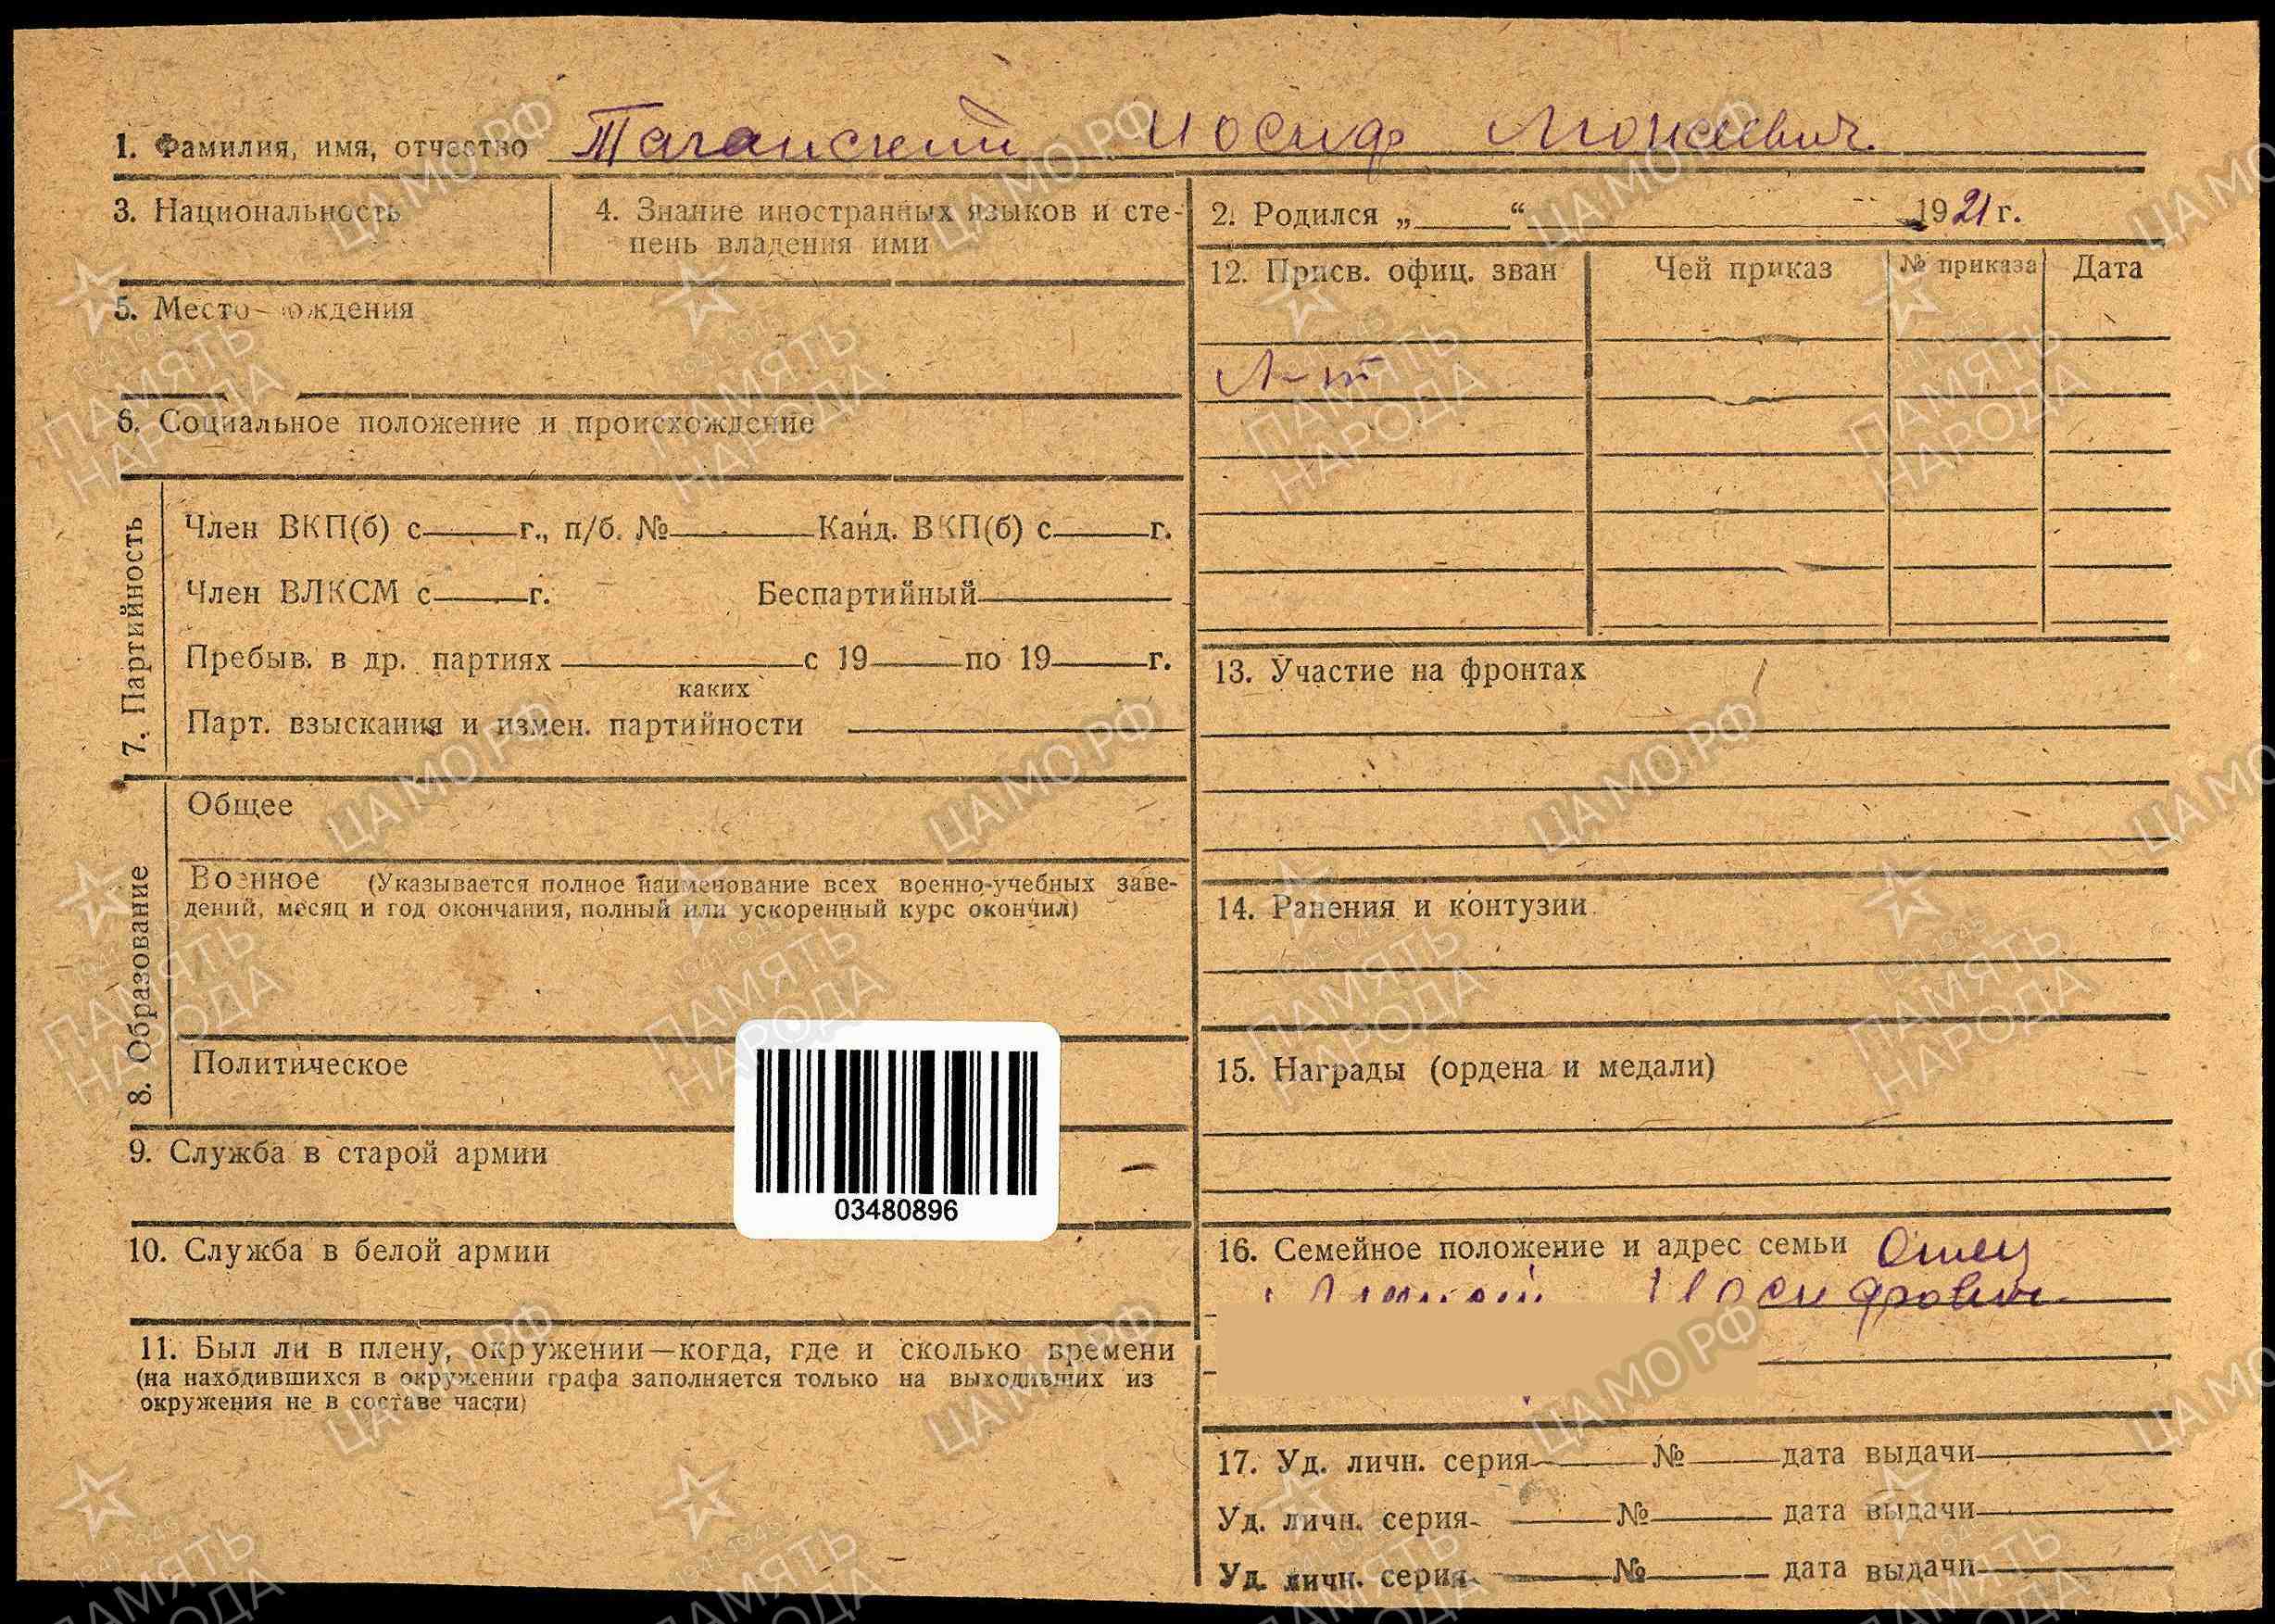 1. Фамилия, имя, отчество Таганский Иосиф Моисеевич.
3. Национальность
4. Знание иностранных языков и сте-
пень владения ими
2. Родился „ “ 1921 г.
5. Место рождения
6. Социальное положение и происхождение
7. Партийность
Член ВКП(б) с г., п/б. № Канд. ВКП(б) с г.
Член ВЛКСМ с г. Беспартийный
Пребыв. в др. партиях с 19 по 19 г.
каких
Парт. взыскания и измен. партийности
8. Образование
Общее
Военное (Указывается полное наименование всех военно-учебных заве-
дений, месяц и год окончания, полный или ускоренный курс окончил)
Политическое
9. Служба в старой армии
10. Служба в белой армии
11. Был ли в плену, окружении—когда, где и сколько времени
(на находившихся в окружении графа заполняется только на выходивших из
окружения не в составе части)
03480896
12. Присв. офиц. зван Чей приказ № приказа Дата
Л-т
13. Участие на фронтах
14. Ранения и контузии
15. Награды (ордена и медали)
16. Семейное положение и адрес семьи Отец
Иосифович
17. Уд. личн. серия № дата выдачи
Уд. личн. серия № дата выдачи
Уд. личн. серия № дата выдачи
ЦА МО РФ
1941-1945
ПАМЯТЬ
НАРОДА